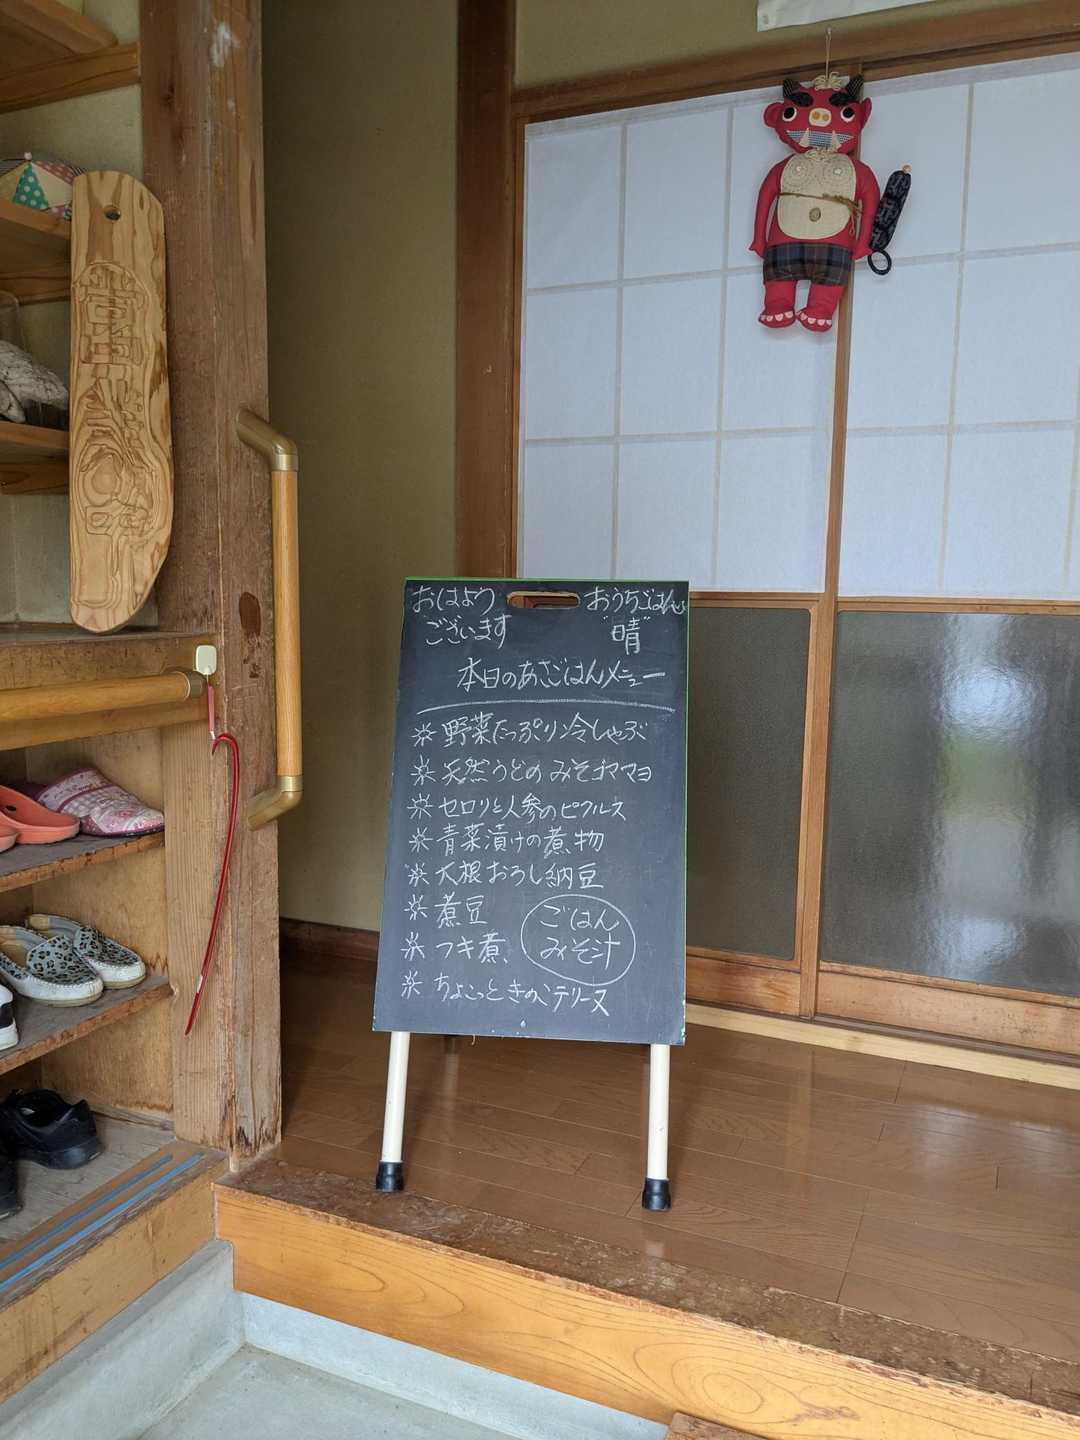 おはよう
ございます
おうちごはん
"晴"
本日のあさごはんメニュー
※ 野菜たっぷり冷しゃぶ
※ 天然うどのみそゴママヨ
※ セロリと人参のピクルス
※ 青菜漬けの煮物
※ 大根おろし納豆
※ 煮豆
※ フキ煮
※ ちょこっときのこテリーヌ
ごはん
みそ汁